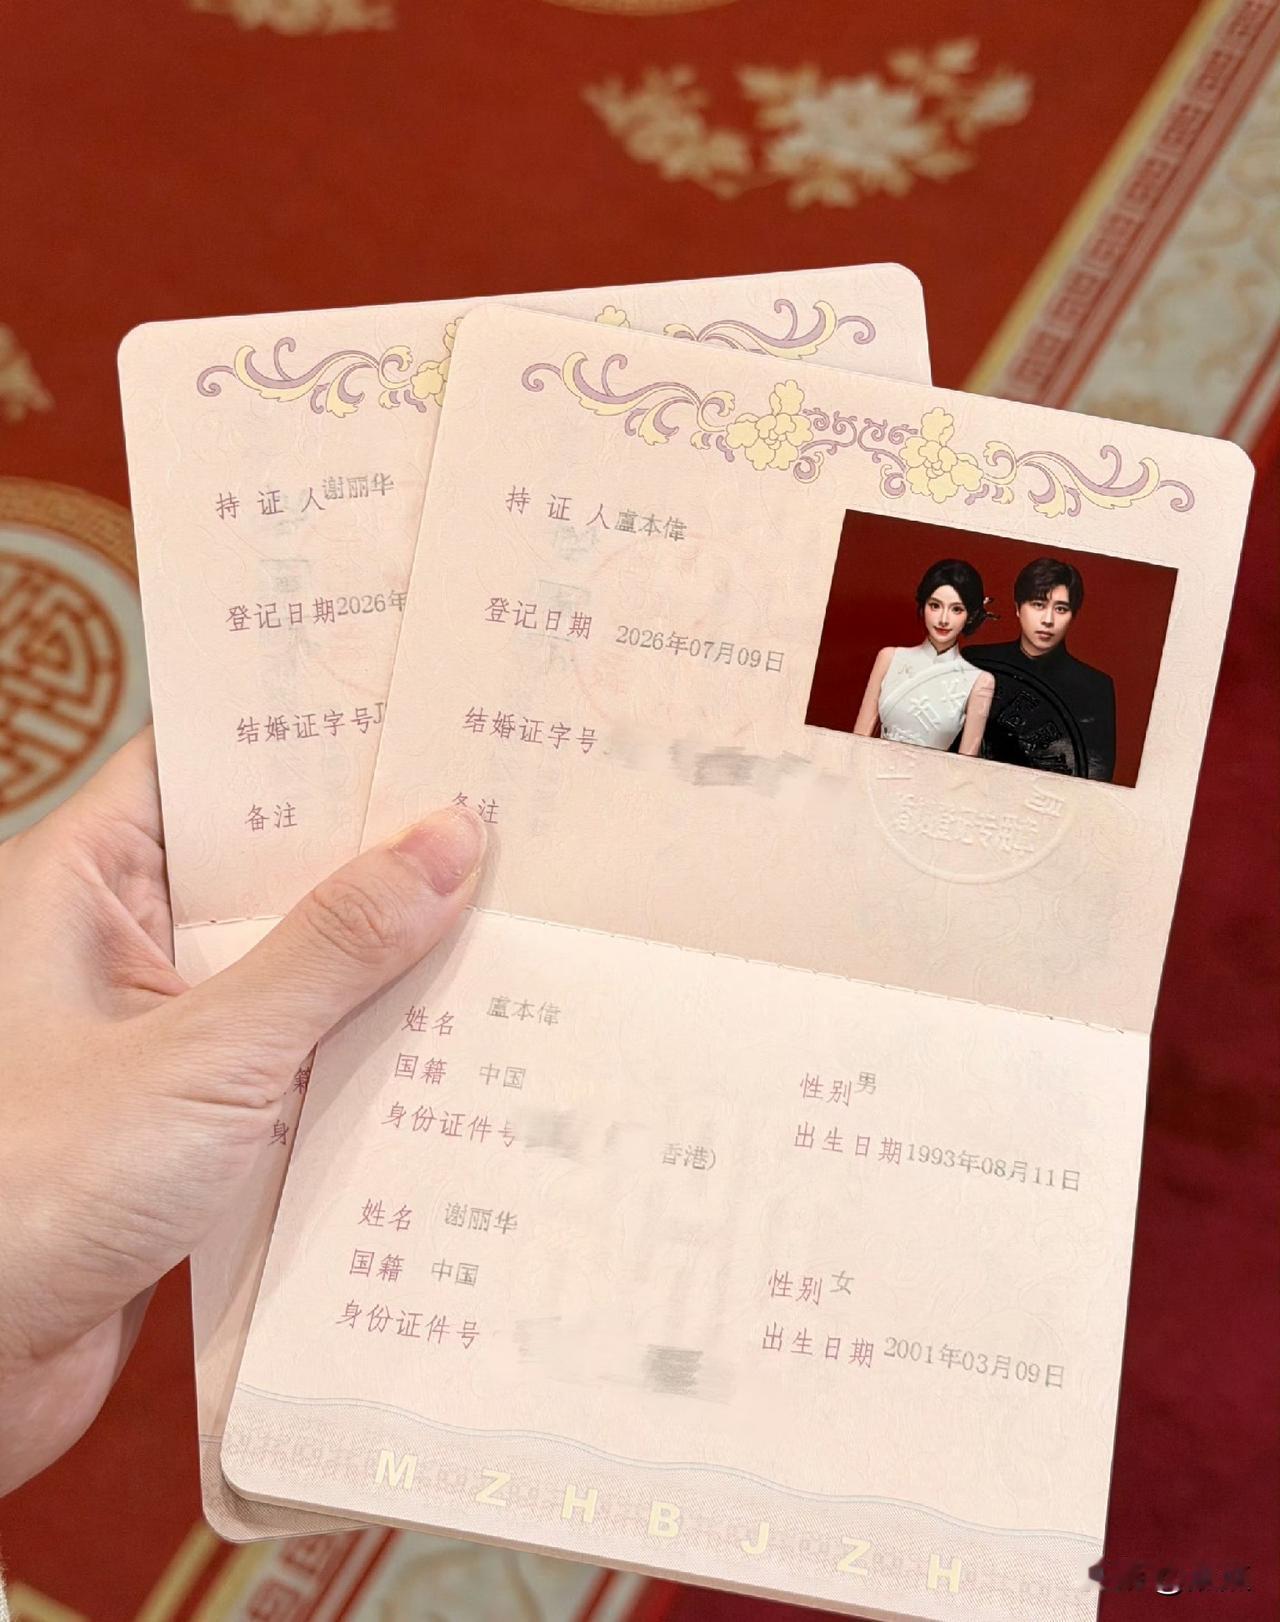 持证人谢丽华
登记日期2026年
结婚证字号J
备注
持证人盧本偉
登记日期 2026年07月09日
结婚证字号
备注
婚姻登记专用章
姓名 盧本偉
国籍 中国 性别男
身份证件号 香港) 出生日期1993年08月11日
姓名 谢丽华
国籍 中国 性别女
身份证件号 出生日期2001年03月09日
籍
身
MZHBJZH